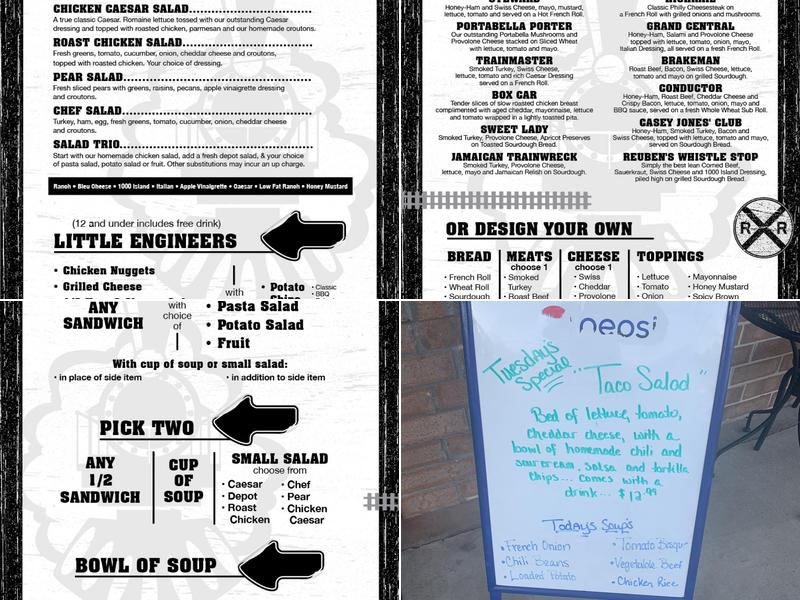 CHICKEN CAESAR SALAD
A true classic Caesar. Romaine lettuce tossed with our outstanding Caesar
dressing and topped with roasted chicken, parmesan and our homemade croutons.
ROAST CHICKEN SALAD
Fresh greens, tomato, cucumber, onion, cheddar cheese and croutons,
topped with roasted chicken. Your choice of dressing.
PEAR SALAD
Fresh sliced pears with greens, raisins, pecans, apple vinaigrette dressing
and croutons.
CHEF SALAD
Turkey, ham, egg, fresh greens, tomato, cucumber, onion, cheddar cheese
and croutons.
SALAD TRIO
Start with our homemade chicken salad, add a fresh depot salad, & your choice
of pasta salad, potato salad or fruit. Other substitutions may incur an up charge.
Ranch • Bleu Cheese • 1000 Island • Italian • Apple Vinaigrette • Caesar • Low Fat Ranch • Honey Mustard
(12 and under includes free drink)
LITTLE ENGINEERS
• Chicken Nuggets
• Grilled Cheese
with
• Potato
Chips
• Classic
• BBQ
Honey-Ham and Swiss Cheese, mayo, mustard,
lettuce, tomato and served on a Hot French Roll.
PORTABELLA PORTER
Our outstanding Portabella Mushrooms and
Provolone Cheese stacked on Sliced Wheat
with lettuce, tomato and mayo.
TRAINMASTER
Smoked Turkey, Swiss Cheese,
lettuce, tomato and rich Caesar Dressing
served on a French Roll.
BOX CAR
Tender slices of slow roasted chicken breast
complimented with aged cheddar, mayonnaise, lettuce
and tomato wrapped in a lightly toasted pita.
SWEET LADY
Smoked Turkey, Provolone Cheese, Apricot Preserves
on Toasted Sourdough Bread.
JAMAICAN TRAINWRECK
Smoked Turkey, Provolone Cheese,
lettuce, mayo and Jamaican Relish on Sourdough.
Classic Philly Cheesesteak on
a French Roll with grilled onions and mushrooms.
GRAND CENTRAL
Honey-Ham, Salami and Provolone Cheese
topped with lettuce, tomato, onion, mayo,
Italian Dressing, all served on a fresh French Roll.
BRAKEMAN
Roast Beef, Bacon, Swiss Cheese, lettuce,
tomato and mayo on grilled Sourdough.
CONDUCTOR
Honey-Ham, Roast Beef, Cheddar Cheese and
Crispy Bacon, lettuce, tomato, onion, mayo and
BBQ sauce, served on a fresh Whole Wheat Sub Roll.
CASEY JONES' CLUB
Honey-Ham, Smoked Turkey, Bacon and
Swiss Cheese, topped with lettuce, tomato, and mayo,
served on grilled Sourdough.
REUBEN'S WHISTLE STOP
Simply the best lean Corned Beef,
Sauerkraut, Swiss Cheese and 1000 Island Dressing,
piled high on grilled Sourdough Bread.
R R
OR DESIGN YOUR OWN
BREAD
• French Roll
• Wheat Roll
• Sourdough
MEATS
choose 1
• Smoked
Turkey
• Roast Beef
CHEESE
choose 1
• Swiss
• Cheddar
• Provolone
TOPPINGS
• Lettuce
• Tomato
• Onion
• Mayonnaise
• Honey Mustard
• Spicy Brown
ANY
SANDWICH
with
choice
of
• Pasta Salad
• Potato Salad
• Fruit
With cup of soup or small salad:
• in place of side item
• in addition to side item
PICK TWO
ANY
1/2
SANDWICH
CUP
OF
SOUP
SMALL SALAD
choose from
• Caesar
• Depot
• Roast
Chicken
• Chef
• Pear
• Chicken
Caesar
BOWL OF SOUP
neosi
Tuesday's
Special
"Taco Salad"
Bed of lettuce, tomato,
cheddar cheese, with a
bowl of homemade chili and
sour cream, salsa and tortilla
chips... comes with a
drink... $12.99
Today's Soups
• French Onion
• Chili Beans
• Loaded Potato
• Tomato Bisque
• Vegetable Beef
• Chicken Rice